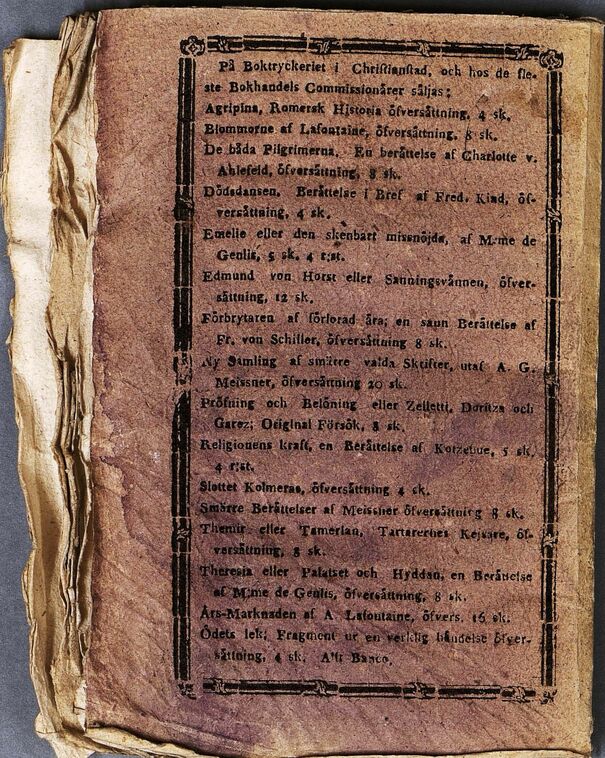 På Boktryckeriet i Christianstad, och hos de fle-
ste Bokhandels Commissionårer såljas:
Agripina, Romersk Historia ôfversåttning, 4 sk.
Blommorne af Lafontaine, ôfversåttning, 8 sk.
De båda Pilgrimerna. En beråttelse af Charlotte v.
Ahlefeld, ôfversåttning, 8 sk.
Dôdsdansen. Beråttelse i Bref af Fred. Kind, ôf-
versåttning, 4 sk.
Emelie eller den skenbart missnôjda, af M:me de
Genlis, 5 sk. 4 r:st.
Edmund von Horst eller Sanningsvånnen, ôfver-
såttning, 12 sk.
Fôrbrytaren af fôrlorad åra; en sann Beråttelse af
Fr. von Schiller, ôfversåttning 8 sk.
Ny Samling af smårre valda Skrifter, utaf A. G.
Meissner, ôfversåttning 20 sk.
Prôfning och Belôning eller Zelletti, Doritza och
Garez; Original Fôrsôk, 8 sk.
Religionens kraft, en Beråttelse af Kotzebue, 5 sk.
4 r:st.
Slottet Kolmeras, ôfversåttning 4 sk.
Smårre Beråttelser af Meissner ôfversåttning 8 sk.
Themir eller Tamerlan, Tartarernes Kejsare, ôf-
versåttning, 8 sk.
Theresia eller Palatset och Hyddan, en Beråttelse
af M:me de Genlis, ôfversåttning, 8 sk.
Års-Marknaden af A. Lafontaine, ôfvers. 16 sk.
Ôdets lek, Fragment ur en verklig håndelse ôfver-
såttning, 4 sk. Allt Banco.